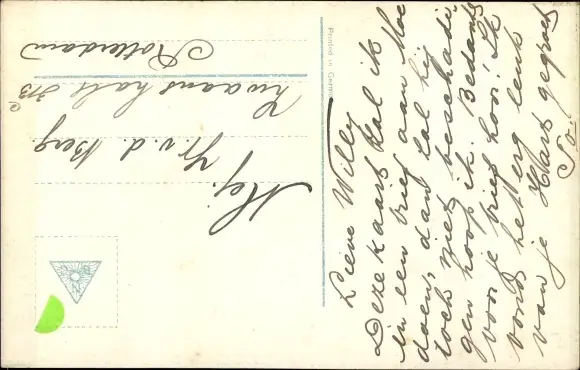 Lieve Willy
Deze kaart zal ik
in een brief aan Moe
doen, dan zal hij
toch niet beschadi
gen hoop ik. Bedankt
voor je brief hoor! Ik
vond het erg leuk
van je Hart gegroet
Printed in Germ
Mej. v. d. Berg
Zwaanshals 373
Rotterdam